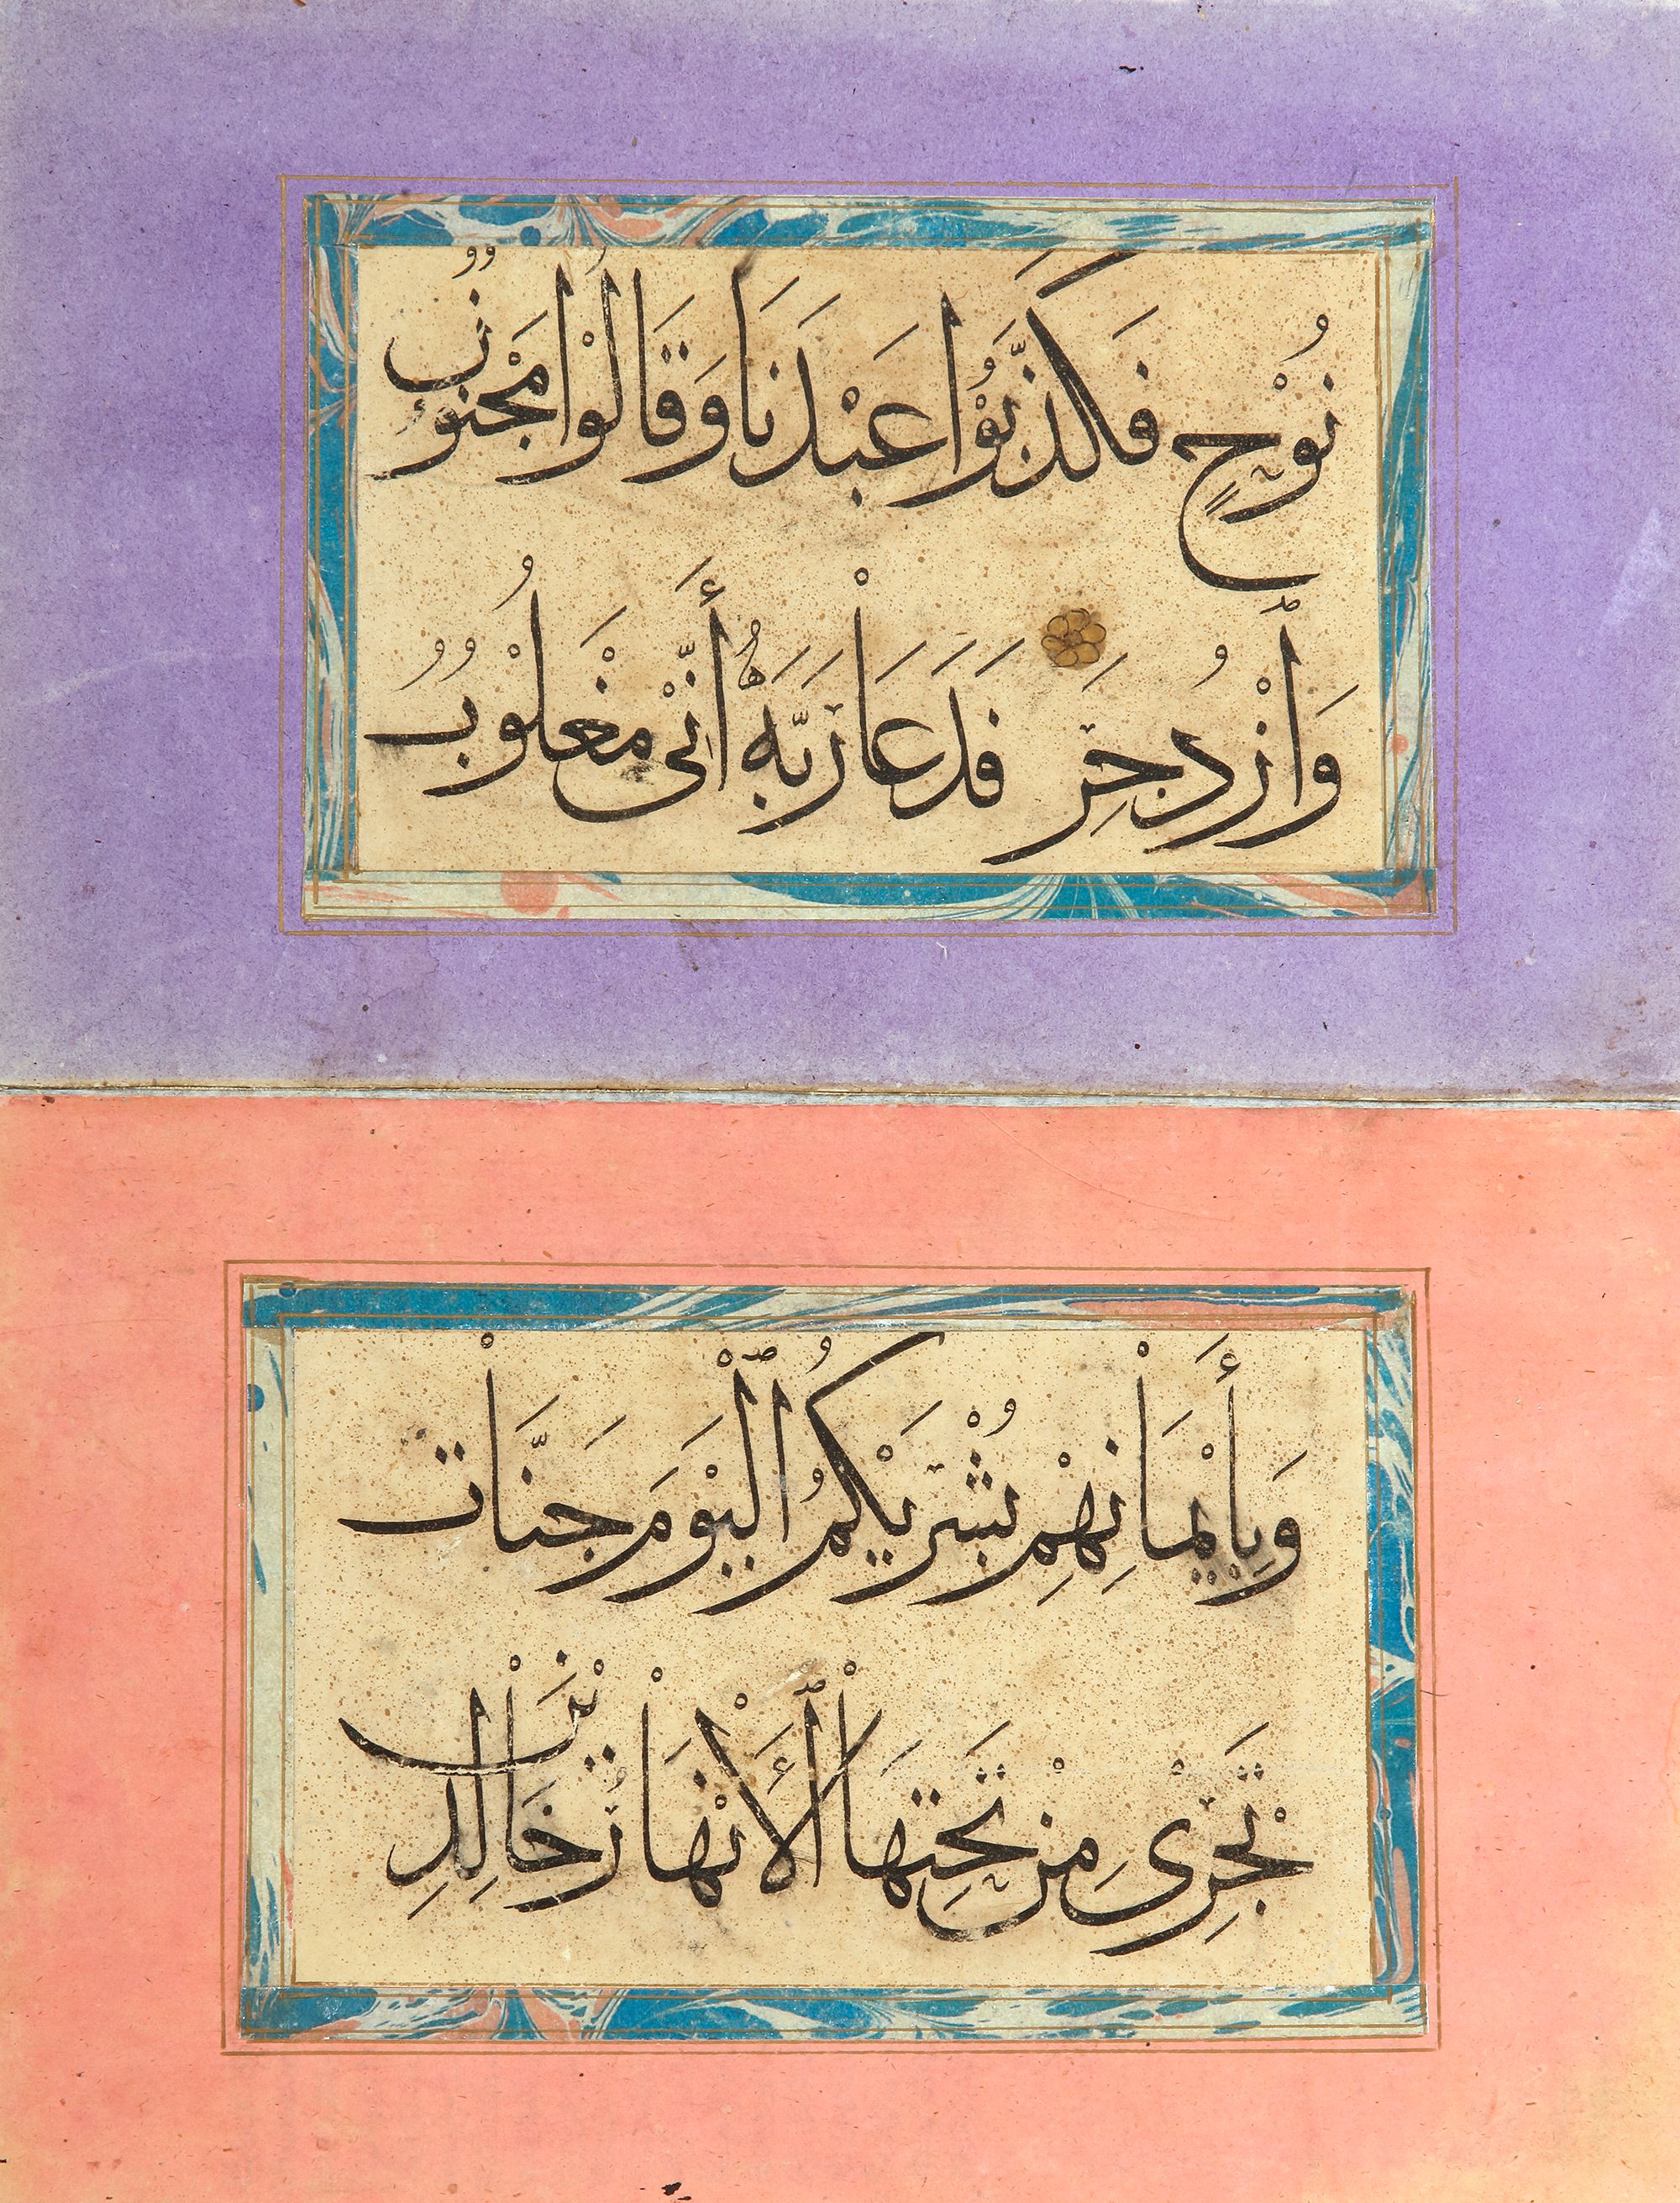 نُوْحٍ فَكَذَّبُوْا عَبْدَنَا وَقَالُوْا مَجْنُوْنٌ
وَٱزْدُجِرَ فَدَعَا رَبَّهُ أَنِّىْ مَغْلُوْبٌ
وَبِأَيْمَانِهِمْ بُشْرَيٰكُمُ ٱلْيَوْمَ جَنَّاتٌ
تَجْرِىْ مِنْ تَحْتِهَا ٱلْأَنْهَارُ خَالِدِيْنَ